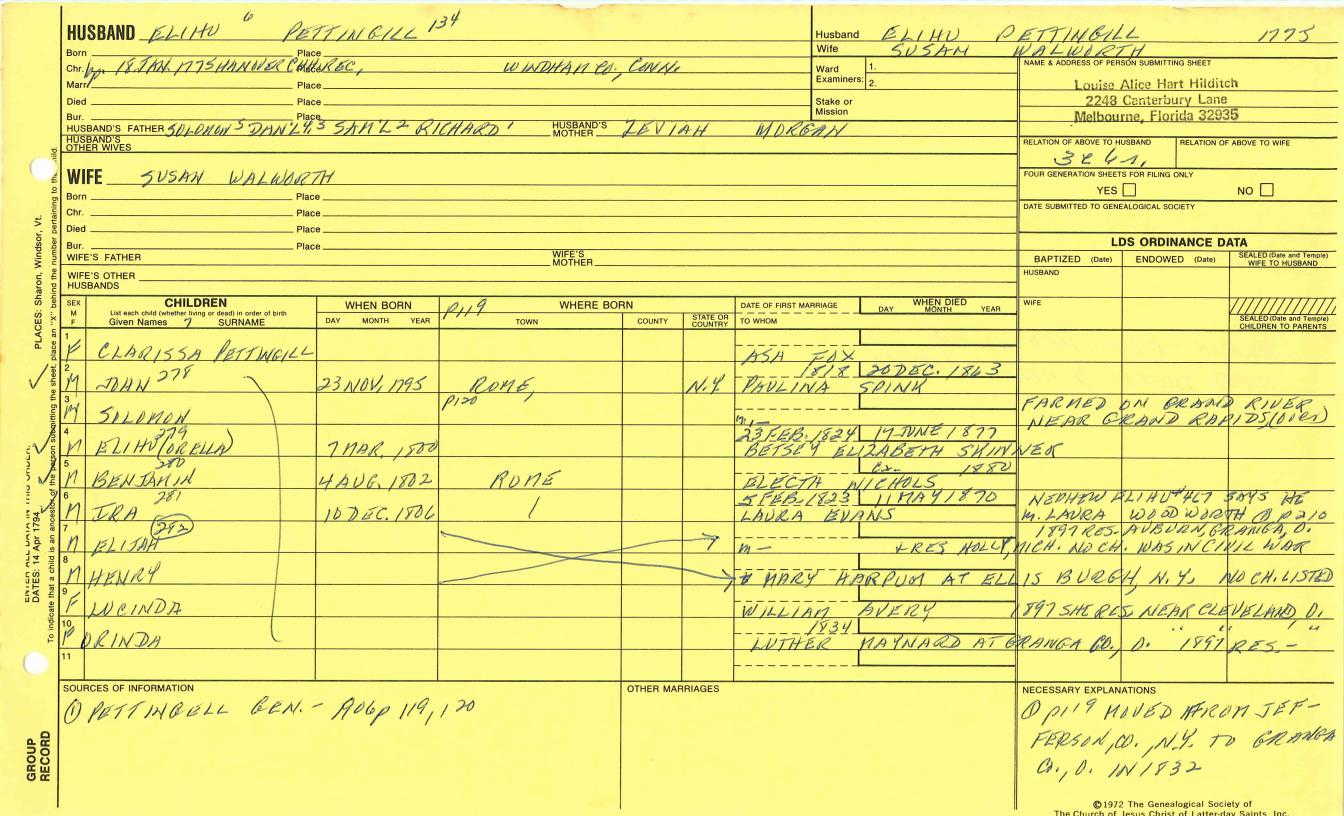 HUSBAND ELIHU 6 PETTINGILL 134
Born Place
Chr. bp. 18 JAN. 1775 HANOVER CH. REC, Place WINDHAM CO, CONN.
Marr. Place
Died Place
Bur. Place
HUSBAND'S FATHER SOLOMON 5 DAN'L 4,3 SAM'L 2 RICHARD 1 HUSBAND'S MOTHER ZEVIAH MORGAN
HUSBAND'S OTHER WIVES
Husband ELIHU PETTINGILL 1775
Wife SUSAN WALWORTH
Ward Examiners: 1.
2.
Stake or Mission
NAME & ADDRESS OF PERSON SUBMITTING SHEET
Louise Alice Hart Hilditch
2248 Canterbury Lane
Melbourne, Florida 32935
RELATION OF ABOVE TO HUSBAND RELATION OF ABOVE TO WIFE
FOUR GENERATION SHEETS FOR FILING ONLY
YES NO
DATE SUBMITTED TO GENEALOGICAL SOCIETY
WIFE SUSAN WALWORTH
Born Place
Chr. Place
Died Place
Bur. Place
WIFE'S FATHER WIFE'S MOTHER
WIFE'S OTHER HUSBANDS
LDS ORDINANCE DATA
BAPTIZED (Date) ENDOWED (Date) SEALED (Date and Temple) WIFE TO HUSBAND
HUSBAND
WIFE
SEALED (Date and Temple) CHILDREN TO PARENTS
SEX M F CHILDREN WHEN BORN P119 WHERE BORN DATE OF FIRST MARRIAGE WHEN DIED
List each child (whether living or dead) in order of birth
Given Names 7 SURNAME DAY MONTH YEAR TOWN COUNTY STATE OR COUNTRY TO WHOM DAY MONTH YEAR
1 F CLARISSA PETTINGILL ASA FOX
2 M JOHN 278 23 NOV, 1795 ROME, N.Y. 1818 20 DEC. 1863 PAULINA SPINK
3 M SOLOMON P120 FARMED ON GRAND RIVER
NEAR GRAND RAPIDS (over)
m.—
4 M ELIHU 279 (ORELLA) 7 MAR, 1800 23 FEB. 1824 17 JUNE 1877 BETSEY ELIZABETH SKINNER
5 M BENJAMIN 280 4 AUG. 1802 ROME 1880 ELECTA NICHOLS
6 M IRA 281 10 DEC. 1806 5 FEB. 1823 11 MAY 1870 LAURA EVANS
NEPHEW ELIHU #467 SAYS HE
m. LAURA WOODWORTH P210
7 M ELIJAH 282 m— 1897 RES. AUBURN, GRANGA, O.
+ RES HOLLY, MICH. NO CH. WAS IN CIVIL WAR
8 M HENRY MARY HARPUM AT ELLIS BURGH, N.Y. NO CH. LISTED
9 F LUCINDA WILLIAM AVERY 1897 SHE RES. NEAR CLEVELAND, O.
10 F ORINDA 1834 LUTHER MAYNARD AT GRANGA CO., O. 1897 RES.— " " "
11
SOURCES OF INFORMATION
① PETTINGELL GEN. - A06p 119, 120
OTHER MARRIAGES
NECESSARY EXPLANATIONS
① p119 MOVED FROM JEF-
FERSON, CO., N.Y. TO GRANGA
CO., O. IN 1832
©1972 The Genealogical Society of
The Church of Jesus Christ of Latter-day Saints, Inc.
PLACES: Sharon, Windsor, Vt.
DATES: 14 Apr 1794
GROUP RECORD